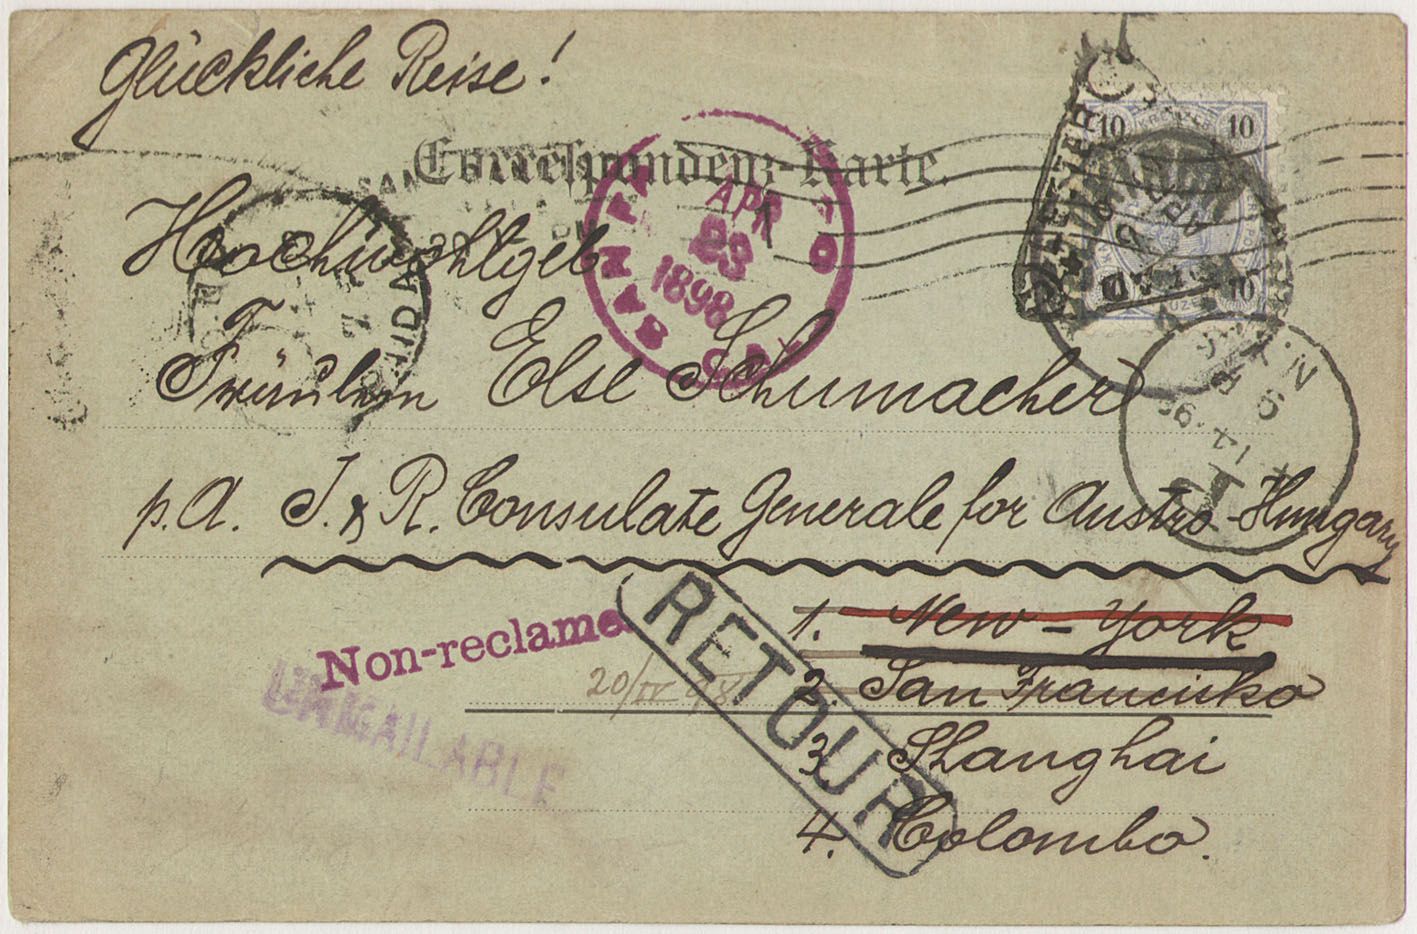 Glückliche Reise!
Correspondenz-Karte.
Hochwohlgeb
Fräulein Else Schumacher
p. A. I. & R. Consulate Generale for Austro-Hungary
1. New-York
2. San Francisko
3 Shanghai
4. Colombo.
Non-reclame
RETOUR
UNMAILABLE
20/IV 98
APR
23
1898
SAN FRA
CAL
N.Y.
10
10
10
KREUZER